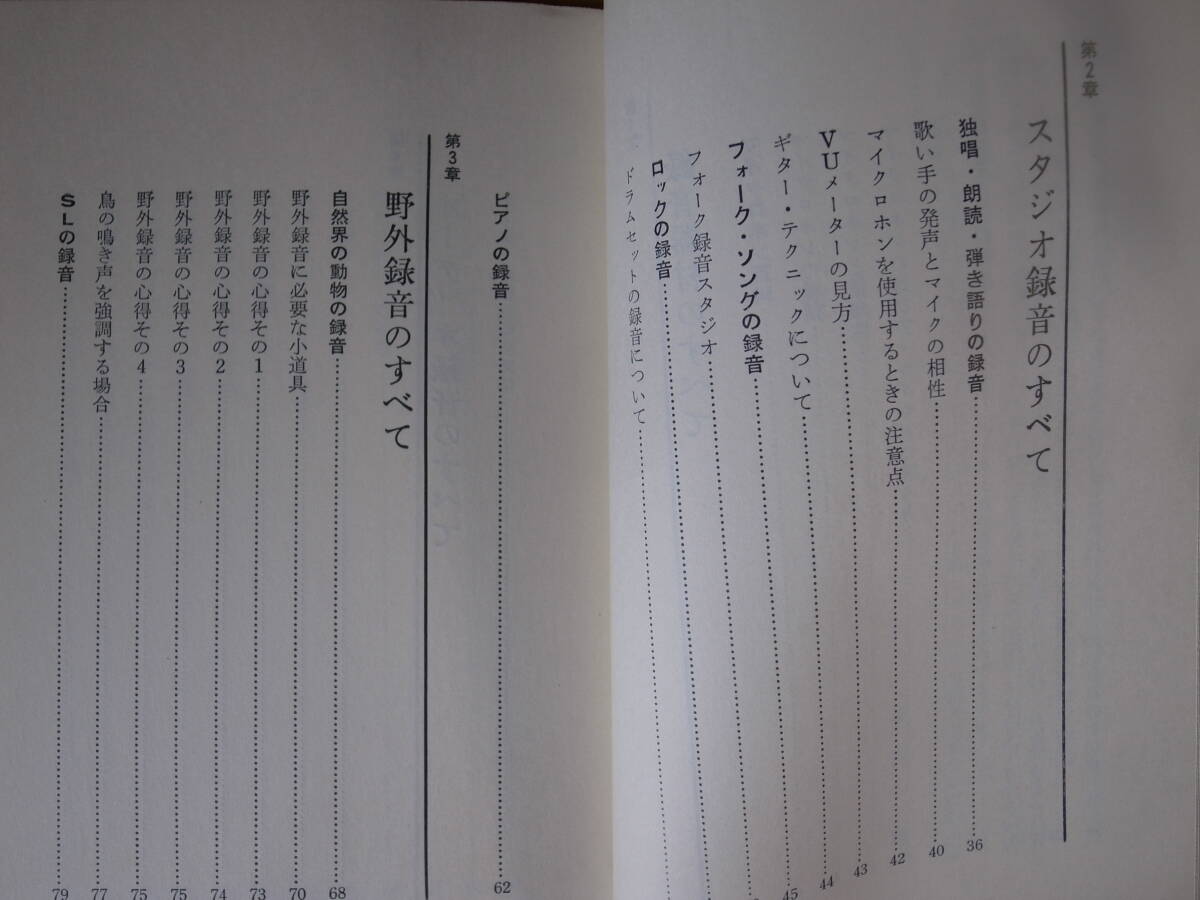 第2章
スタジオ録音のすべて
独唱・朗読・弾き語りの録音 36
歌い手の発声とマイクの相性 40
マイクロホンを使用するときの注意点 42
VUメーターの見方 43
ギター・テクニックについて 44
フォーク・ソングの録音 45
フォーク録音スタジオ
ロックの録音
ドラムセットの録音について
ピアノの録音 62
第3章
野外録音のすべて
自然界の動物の録音 68
野外録音に必要な小道具 70
野外録音の心得その1 73
野外録音の心得その2 74
野外録音の心得その3 75
野外録音の心得その4 75
鳥の鳴き声を強調する場合 77
SLの録音 79